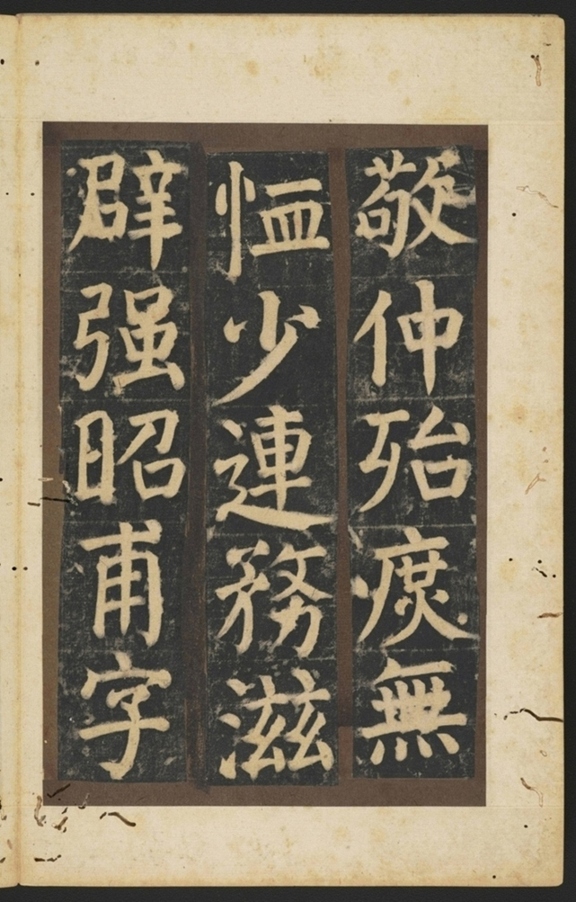 敬仲殆庶無
恤少連務滋
辟强昭甫字